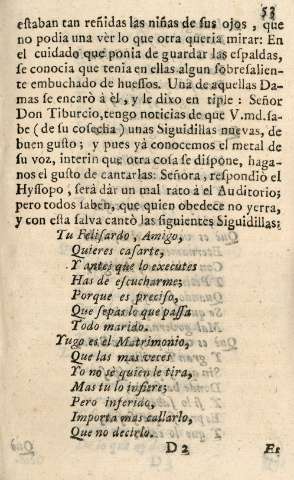 53
estaban tan reñidas las niñas de sus ojos, que
no podia una vèr lo que otra queria mirar: En
el cuidado que ponia de guardar las espaldas,
se conocia que tenia en ellas algun sobresalien-
te embuchado de huessos. Una de aquellas Da-
mas se encarò à èl, y le dixo en tiple: Señor
Don Tiburcio, tengo noticias de que V.md. sa-
be (de su cosecha) unas Siguidillas nuevas, de
buen gusto; y pues yà conocemos el metal de
su voz, interin que otra cosa se dispone, haga-
nos el gusto de cantarlas: Señora, respondiò el
Hyssopo, serà dàr un mal rato à el Auditorio;
pero todos saben, que quien obedece no yerra,
y con esta salva cantò las siguientes Siguidillas:
Tu Felisardo, Amigo,
Quieres casarte,
Y antes que lo executes
Has de escucharme;
Porque es preciso,
Que sepas lo que passa
Todo marido.
Yugo es el Matrimonio,
Que las mas veces
Yo no sè quien le tira,
Mas tu lo infieres;
Pero inferido,
Importa mas callarlo,
Que no decirlo.
D 2 Es